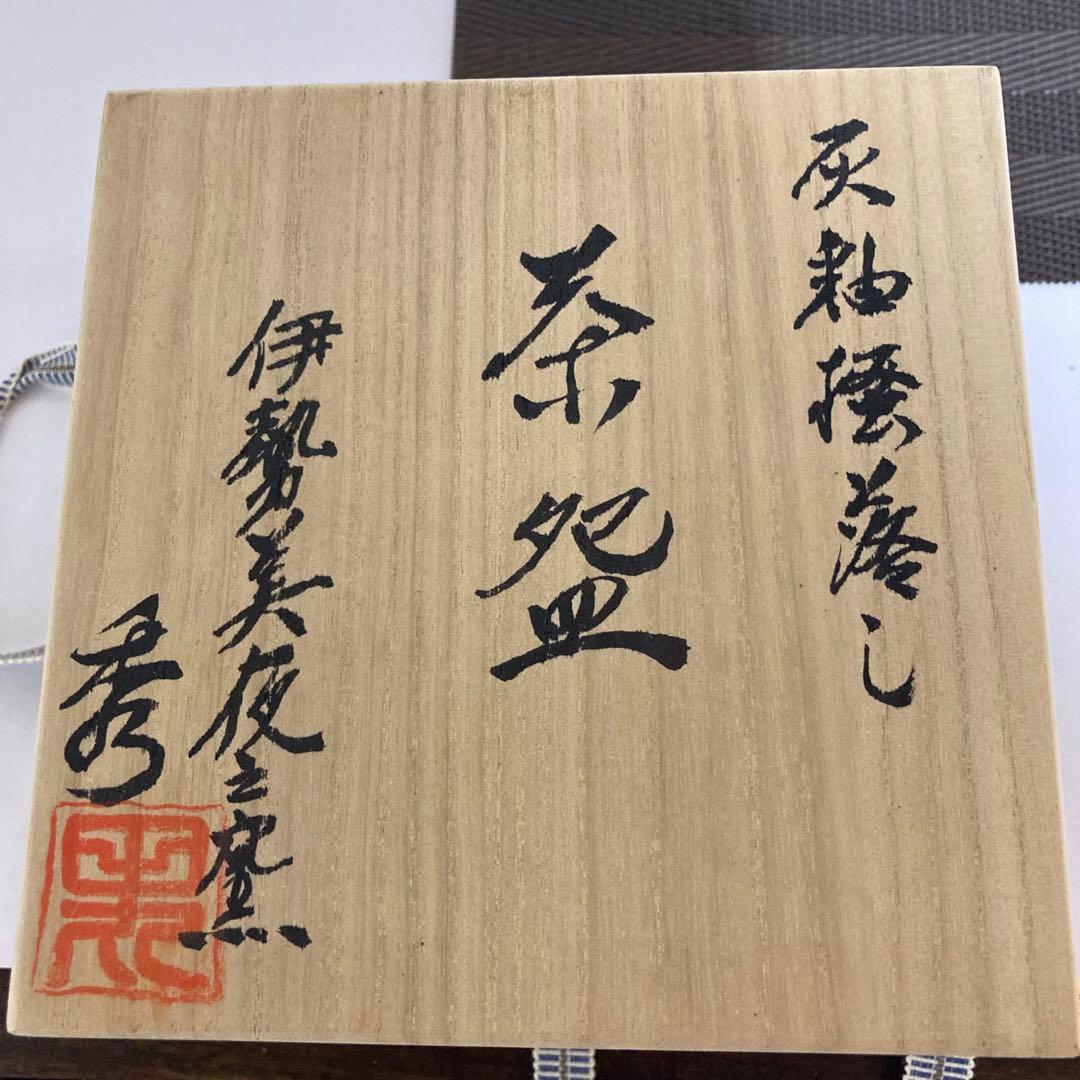 灰釉掻落し
茶盌
伊勢美夜之窯
秀